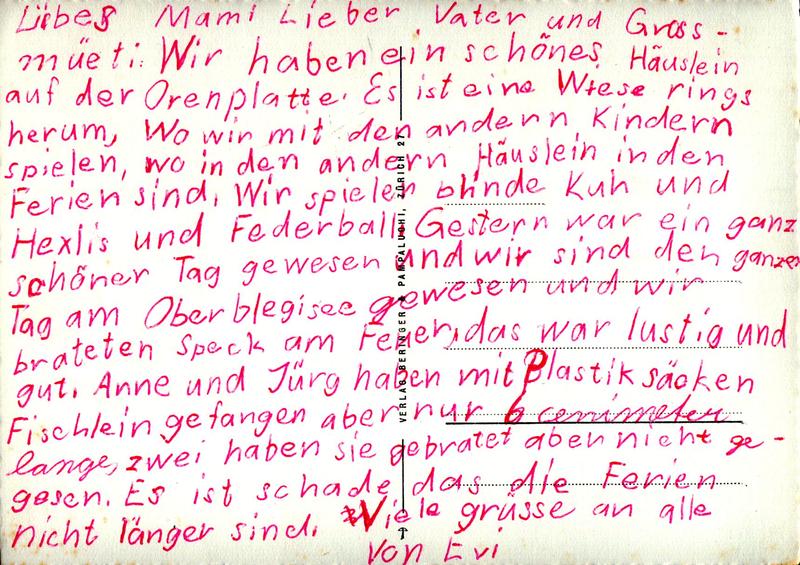 Lübes Mami Lieber Vater und Gross-
müeti. Wir haben ein schönes Häuslein
auf der Orenplatte. Es ist eine Wiese rings
herum, Wo wir mit den andern Kindern
spielen, wo in den andern Häuslein in den
Ferien sind. Wir spielen blinde Kuh und
Hexlis und Federball. Gestern war ein ganz
schöner Tag gewesen und wir sind den ganzen
Tag am Oberblegisee gewesen und wir
brateten Speck am Feuer, das war lustig und
gut. Anne und Jürg haben mit Plastiksäcken
Fischlein gefangen aber nur 6 cenimeter
lange, zwei haben sie gebratet aben nicht ge-
gesen. Es ist schade das die Ferien
nicht länger sind. Viele grüsse an alle
Von Evi
VERLAG BERINGER & PAMPALUCHI, ZÜRICH 27